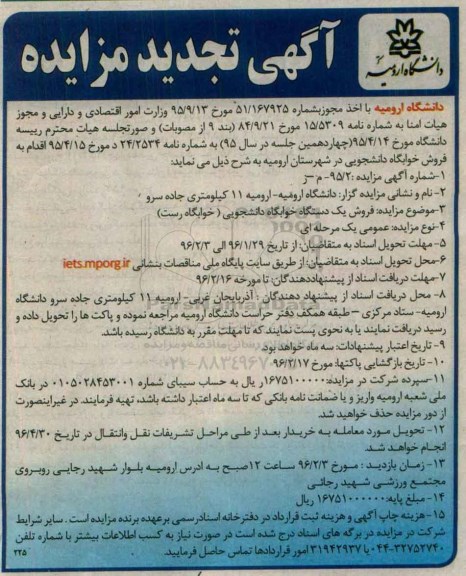 آگهی تجدید مزایده
دانشگاه ارومیه
دانشگاه ارومیه با اخذ مجوزبشماره ۵۱/۱۶۷۹۲۵ مورخ ۹۵/۹/۱۳ وزارت امور اقتصادی و دارایی و مجوز
هیات امنا به شماره نامه ۱۵/۵۳۰۹ مورخ ۸۴/۹/۲۱ (بند ۹ از مصوبات) و صورتجلسه هیات محترم رییسه
دانشگاه مورخ ۹۵/۴/۱۴(چهاردهمین جلسه در سال ۹۵) به شماره نامه ۲۴/۲۵۳۴ د مورخ ۹۵/۴/۱۵ اقدام به
فروش خوابگاه دانشجویی در شهرستان ارومیه به شرح ذیل می نماید:
۱-شماره آگهی مزایده :۹۵/۲- م –ز
۲- نام و نشانی مزایده گزار: دانشگاه ارومیه- ارومیه ۱۱ کیلومتری جاده سرو
۳-موضوع مزایده: فروش یک دستگاه خوابگاه دانشجویی ( خوابگاه رست)
۴-نوع مزایده: عمومی یک مرحله ای
۵- مهلت تحویل اسناد به متقاضیان: از تاریخ ۹۶/۱/۲۹ الی ۹۶/۲/۳
۶-محل تحویل اسناد به متقاضیان: از طریق سایت پایگاه ملی مناقصات بنشانی iets.mporg.ir
۷-مهلت دریافت اسناد از پیشنهاددهندگان: تا مورخه ۹۶/۲/۱۶
۸- محل دریافت اسناد از پیشنهاد دهندگان : آذربایجان غربی- ارومیه ۱۱ کیلومتری جاده سرو دانشگاه
ارومیه- ستاد مرکزی –طبقه همکف دفتر حراست دانشگاه ارومیه مراجعه نموده و پاکت ها را تحویل داده و
رسید دریافت نمایند یا به نحوی پست نمایند که تا مهلت مقرر به دانشگاه رسیده باشد.
۹- تاریخ اعتبار پیشنهادات: سه ماه خواهد بود.
۱۰- تاریخ بازگشایی پاکتها: مورخ ۹۶/۲/۱۷
۱۱-سپرده شرکت در مزایده:۱۶۷۵۱۰۰۰۰۰ر یال به حساب سیبای شماره ۰۱۰۵۰۲۸۴۵۳۰۰۱ در بانک
ملی شعبه ارومیه واریز و یا ضمانت نامه بانکی که تا سه ماه اعتبار داشته باشد، تهیه فرمایند. در غیراینصورت
از دور مزایده حذف خواهید شد.
۱۲-تحویل مورد معامله به خریدار بعد از طی مراحل تشریفات نقل وانتقال در تاریخ ۹۶/۴/۳۰
انجام خواهد شد.
۱۳-زمان بازدید : مورخ ۹۶/۲/۳ ساعت ۱۲صبح به ادرس ارومیه بلوار شهید رجایی روبروی
مجتمع ورزشی شهید رجائی
۱۴-مبلغ پایه: ۱۶۷۵۱۰۰۰۰۰۰ ریال
۱۵-هزینه چاپ آگهی و هزینه ثبت قرارداد در دفترخانه اسنادرسمی برعهده برنده مزایده است . سایر شرایط
شرکت در مزایده در برگه های اسناد درج شده است در صورت نیاز به کسب اطلاعات بیشتر با شماره تلفن
۰۴۴-۳۲۷۵۲۷۴۰ یا ۳۱۹۴۲۹۳۷ امور قراردادها تماس حاصل فرمایید.
۲۲۵